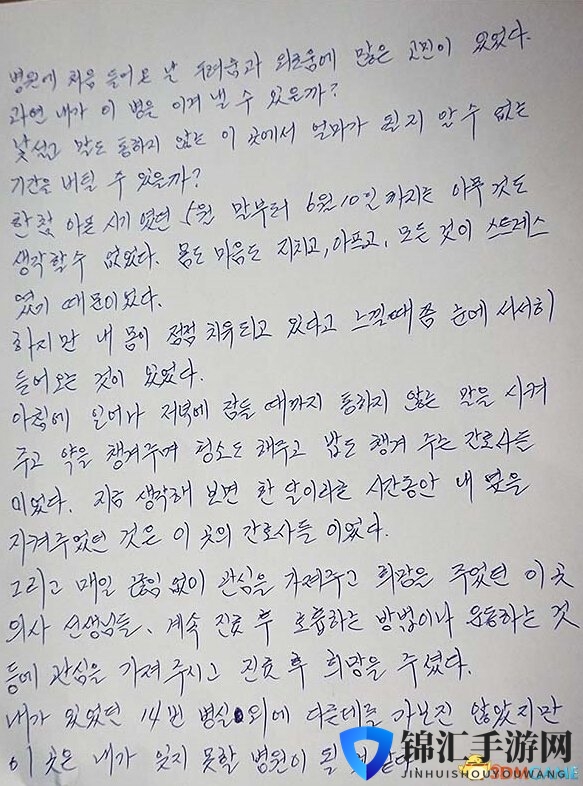 병원에 처음 들어온 날 두려움과 외로움에 많은 고민이 있었다.
과연 내가 이 병을 이겨 낼 수 있을까?
낯설고 말도 통하지 않는 이 곳에서 얼마가 될지 알 수 없는
기간을 버틸 수 있을까?
한참 아픈 시기였던 5월 말부터 6월 10일까지는 아무것도
생각할 수 없었다. 몸도 마음도 지치고, 아프고, 모든 것이 스트레스
였기 때문이었다.
하지만 내 몸이 점점 치유되고 있다고 느낄때쯤 눈에 서서히
들어오는 것이 있었다.
아침에 일어나 저녁에 잠들 때까지 통하지 않는 말을 시켜
주고 약을 챙겨주며 청소도 해주고 밥도 챙겨 주는 간호사들
이었다. 지금 생각해 보면 한 달이라는 시간동안 내 옆을
지켜주었던 것은 이 곳의 간호사들 이었다.
그리고 매일 끊임 없이 관심을 가져주고 희망을 주었던 이 곳
의사 선생님들, 계속 진료 후 호흡하는 방법이나 운동하는 것
등에 관심을 가져 주시고 진료 후 희망을 주셨다.
내가 있었던 14번 병실 외에 다른데를 가보진 않았지만
이 곳은 내가 잊지 못할 병원이 될
锦汇手游网
JINHUISHOUYOUWANG
3DMGAME